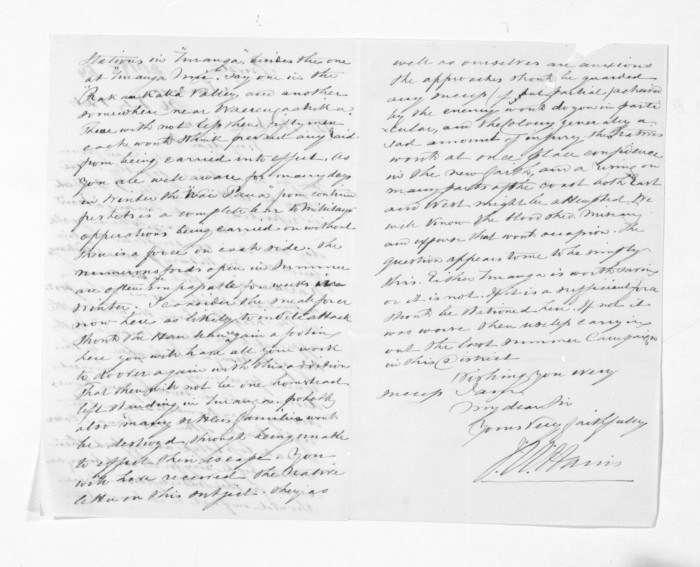 Stations in "Turanga", besides the one
at "Turanga Nui". Say one in the
Valley, and another
somewhere near Waerengaahika.
These with not less than fifty men
each would I think prevent any raid
from being carried into effect. As
you are well aware for many days
in Winter the "Wai Paoa" from continued
freshets is a complete bar to Military
operations being carried on without
there is a force on each side. The
numerous fords open in Summer
are often impassable for weeks in
winter. I consider the small force
now here as likely to invite attack
Should the Hau Hau gain a footing
here you will have all your work
to do over again with this addition
That there will not be one homestead
left standing in Turanga. probably
also many settlers families would
be destroyed, through being unable
to effect their escape. You
will have received the Native
letter on this subject. They as
well as ourselves are anxious
the approaches should be guarded
any success if but partial achieved
by the enemy would do you in parti
cular, and the Colony generally a
sad amount of injury. The Natives
would at once place confidence
in the new faith, and a rising on
many parts of the coast both East
and West might be attempted. We
well know the bloodshed misery
and expense that would occasion. The
question appears to me to be simply
this. Either Turanga is worth saving
or it is not. If it is a sufficient force
should be stationed here. If not it
was worse than useless carrying
out the last summer Campaign
in this District
Wishing you every
success I am
My dear Sir
Yours Very faithfully
J. W. Harris